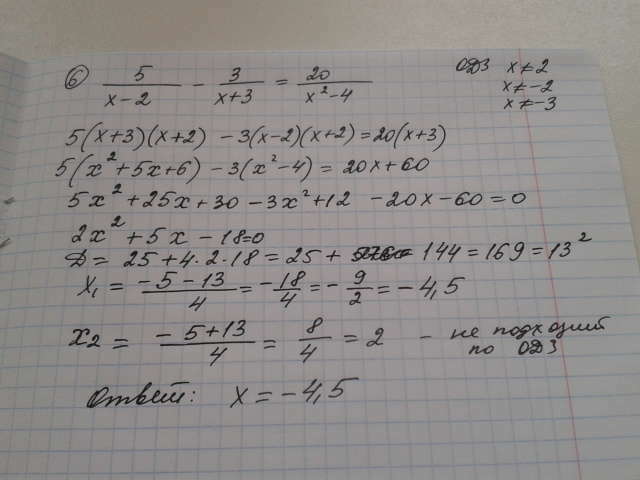 6 5/(x-2) - 3/(x+3) = 20/(x²-4) ОДЗ x≠2
x≠-2
x≠-3
5(x+3)(x+2) -3(x-2)(x+2)=20(x+3)
5(x²+5x+6) -3(x²-4) = 20x+60
5x²+25x+30-3x²+12 -20x-60=0
2x²+5x-18=0
Д= 25+4·2·18=25+ 144=169=13²
x₁ = (-5-13)/4 = -18/4 = -9/2 = -4,5
x₂ = (-5+13)/4 = 8/4 = 2 - не подходит
по ОДЗ
Ответ: x=-4,5